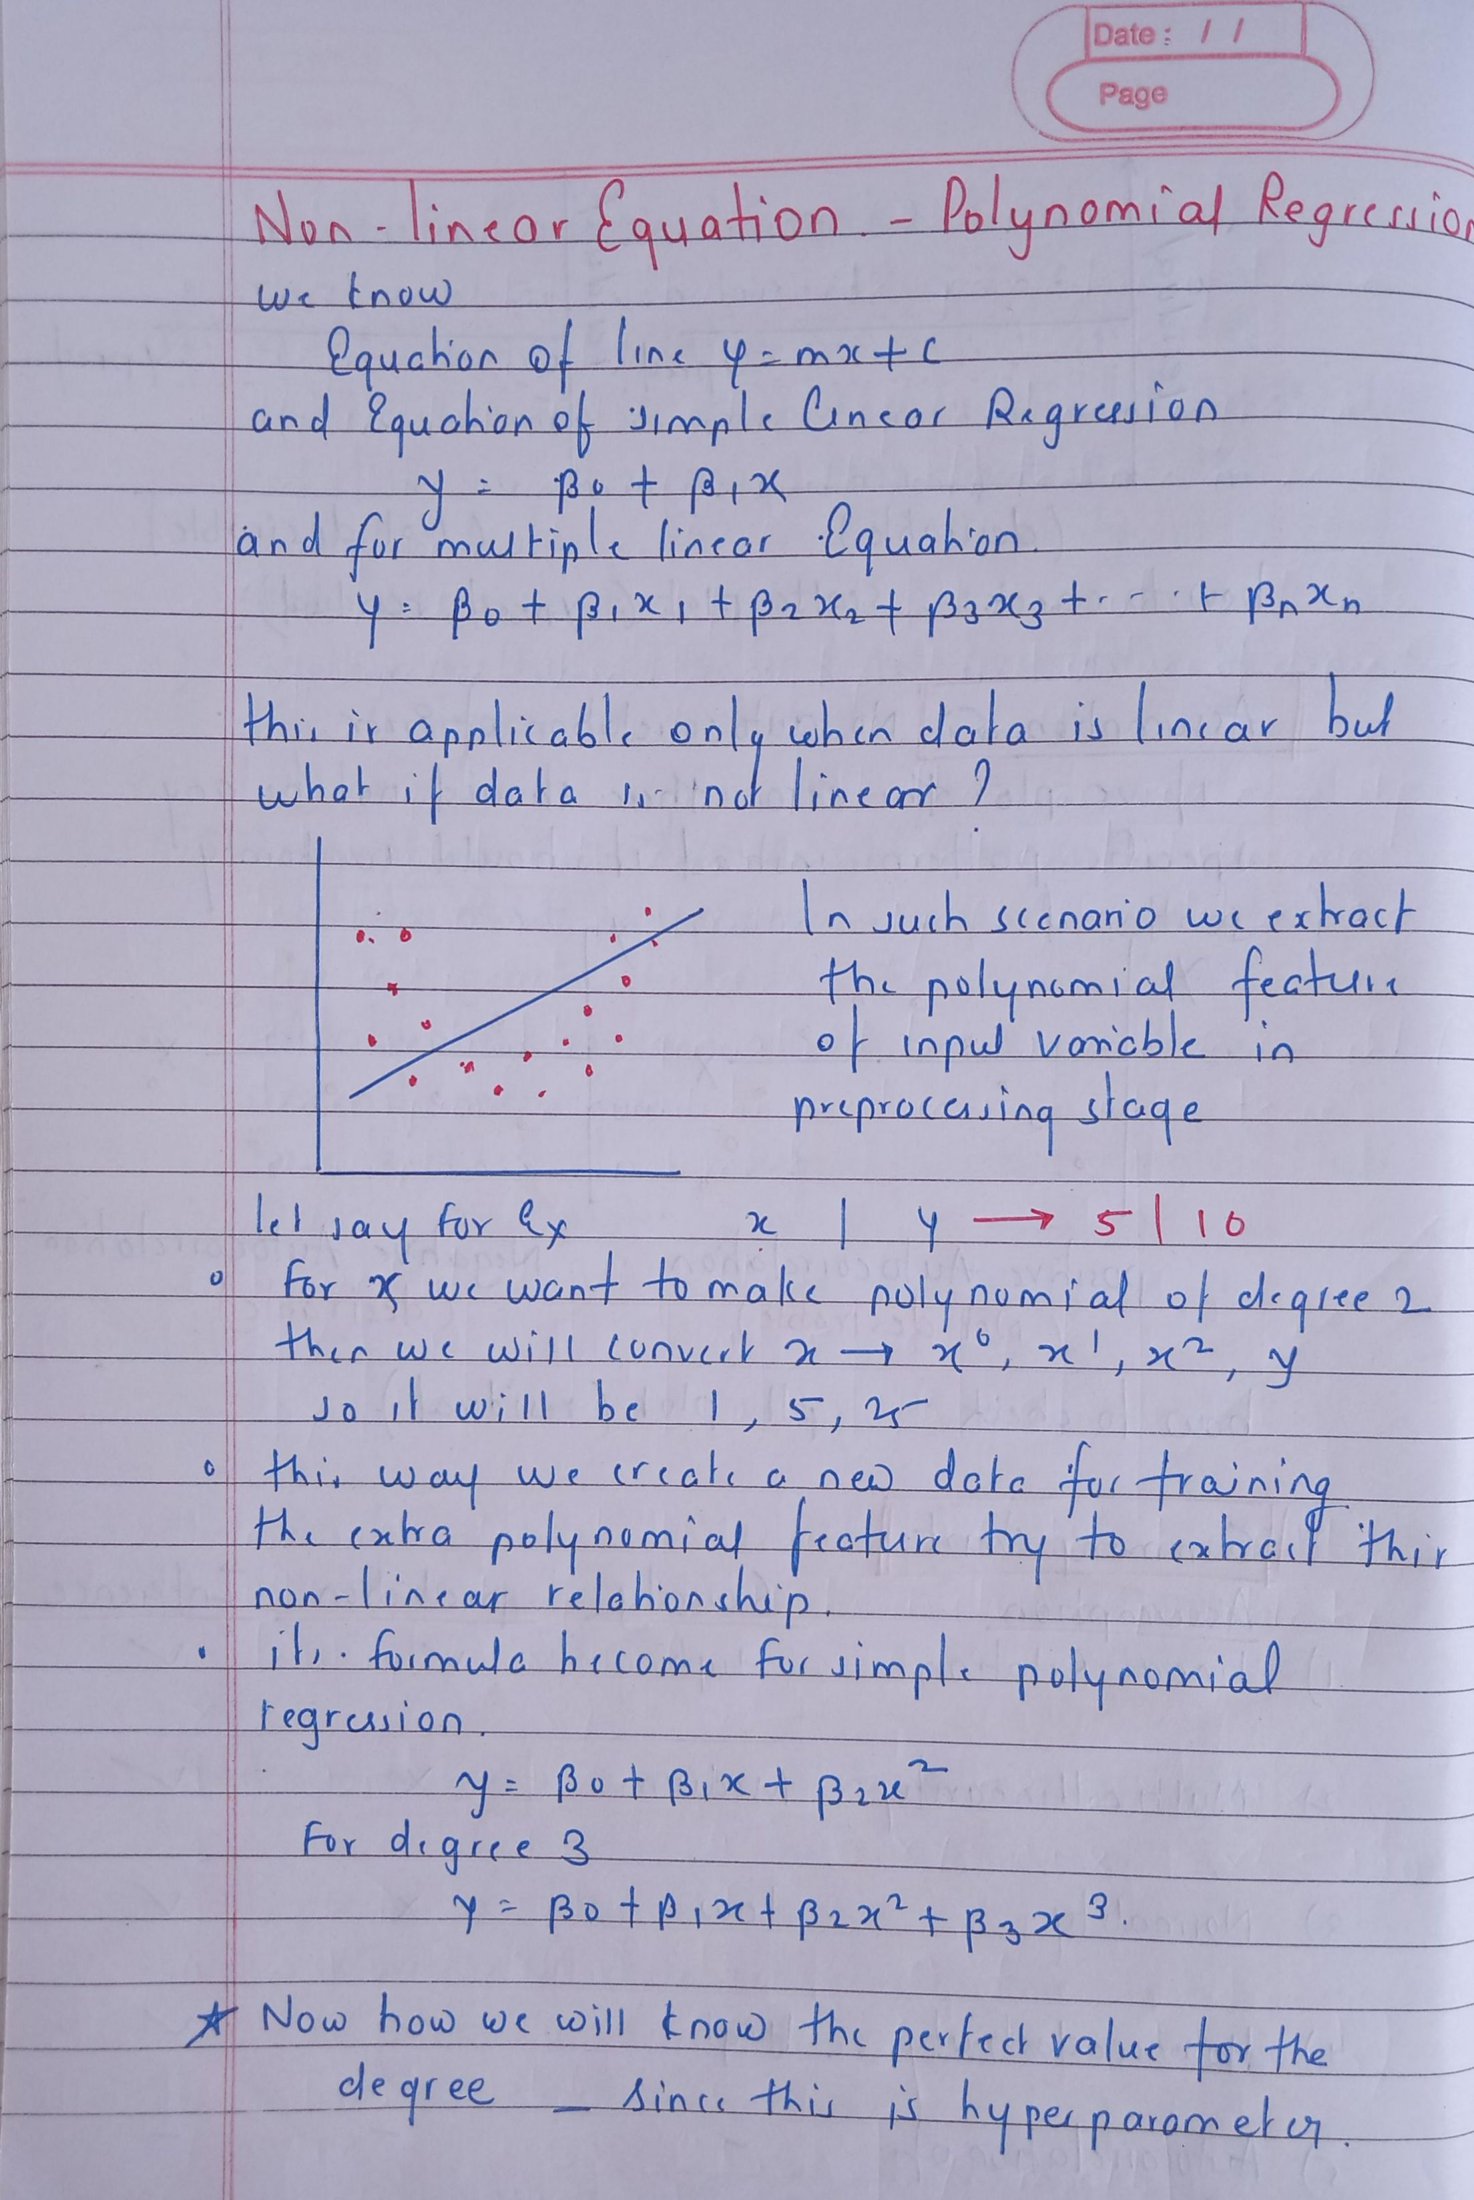 Date : / /
Page
Non-linear Equation - Polynomial Regression
we know
Equation of line y = mx + c
and Equation of simple linear Regression
y = β0 + β1x
and for multiple linear Equation.
y = β0 + β1x1 + β2x2 + β3x3 + .... + βnxn
this is applicable only when data is linear but
what if data is not linear ?
In such scenario we extract
the polynomial feature
of input variable in
preprocessing stage
let say for Ex x | y → 5 | 10
• for x we want to make polynomial of degree 2
then we will convert x → x⁰, x¹, x², y
so it will be 1, 5, 25
• this way we create a new data for training
the extra polynomial feature try to extract this
non-linear relationship.
• its formula become for simple polynomial
regression.
y = β0 + β1x + β2x²
For degree 3
y = β0 + β1x + β2x² + β3x³.
★ Now how we will know the perfect value for the
degree - since this is hyperparameter.